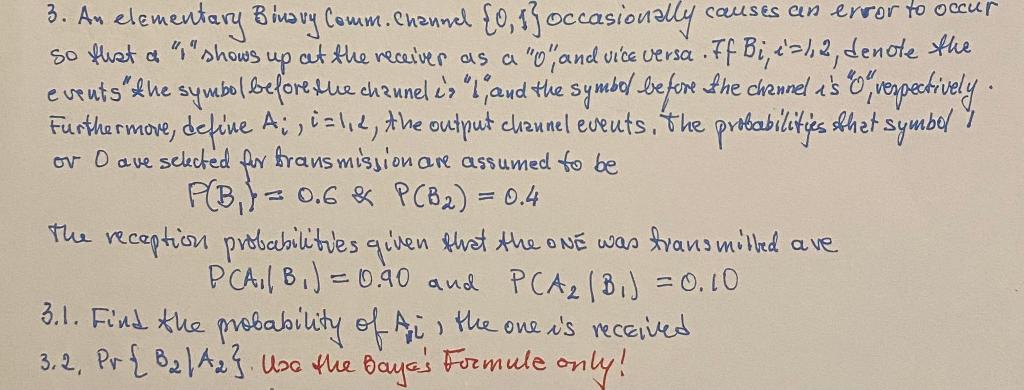 3. An elementary Binary Comm. Channel {0,1} occasionally causes an error to occur
so that a "1" shows up at the receiver as a "0", and vice versa. If Bi, i=1,2, denote the
events "the symbol before the channel is "1", and the symbol before the channel is "0", respectively.
Furthermore, define Ai, i=1,2, the output channel events. The probabilities that symbol 1
or 0 are selected for transmission are assumed to be
P(B₁} = 0.6 & P(B₂) = 0.4
The reception probabilities given that the ONE was transmitted are
P(A₁|B₁) = 0.90 and P(A₂|B₁) = 0.10
3.1. Find the probability of Ai, the one is received
3.2, Pr{B₂|A₂}. Use the Baye's Formule only!